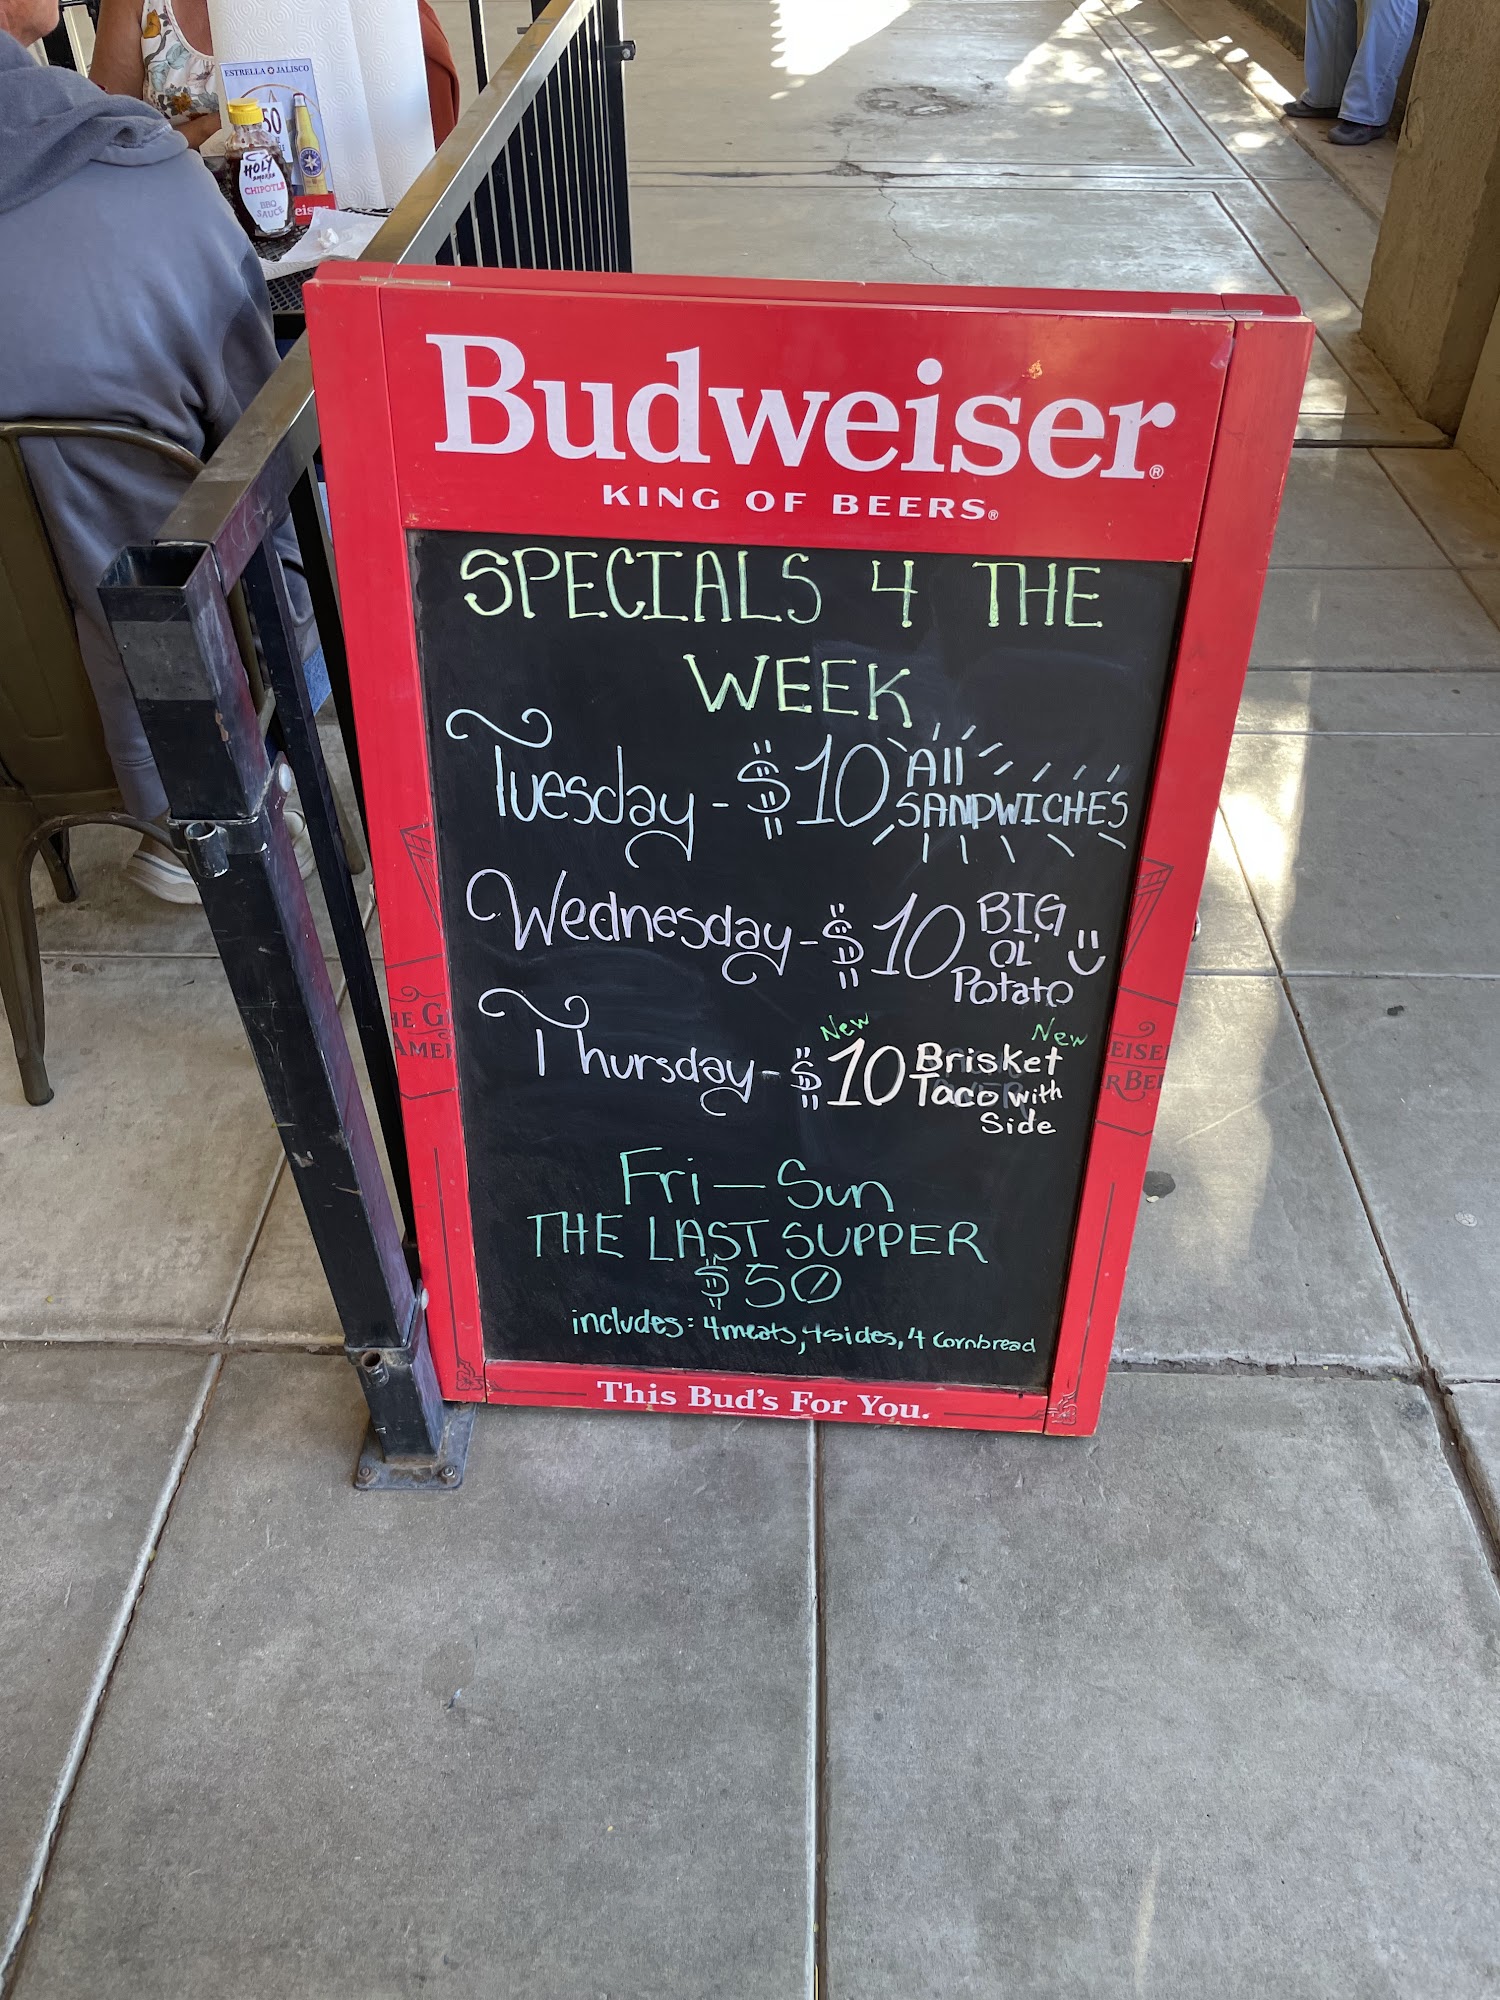 ESTRELLA JALISCO
50
HOLY
SMOKES
CHIPOTLE
BBQ
SAUCE
Budweiser®
KING OF BEERS®
SPECIALS 4 THE
WEEK
Tuesday - $10 All
SANDWICHES
Wednesday - $10 BIG
OL'
Potato
New New
Thursday - $10 Brisket
Taco with
Side
Fri — Sun
THE LAST SUPPER
$50
includes: 4 meats, 4 sides, 4 Cornbread
This Bud's For You.